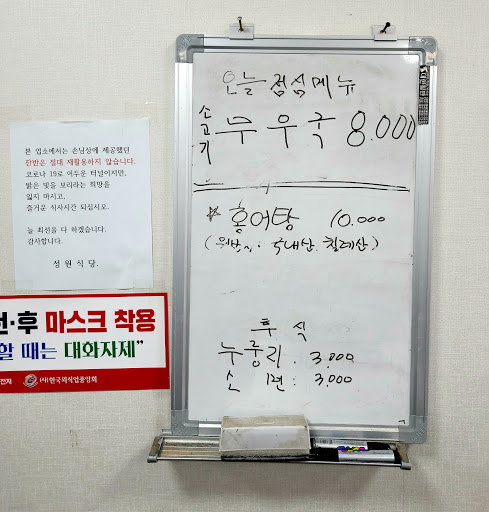 오늘 점심메뉴
소고기 무우국 8.000
* 홍어탕 10.000
(원산지: 국내산. 칠레산.)
후식
누룽지 3.000
소 면. 3.000
본 업소에서는 손님상에 제공했던
잔반은 절대 재활용하지 않습니다.
코로나 19로 어두운 터널이지만,
밝은 빛을 보리라는 희망을
잃지 마시고,
즐거운 식사시간 되십시오.
늘 최선을 다 하겠습니다.
감사합니다.
성원식당.
전·후 마스크 착용
할 때는 대화자제"
(사)한국외식업중앙회